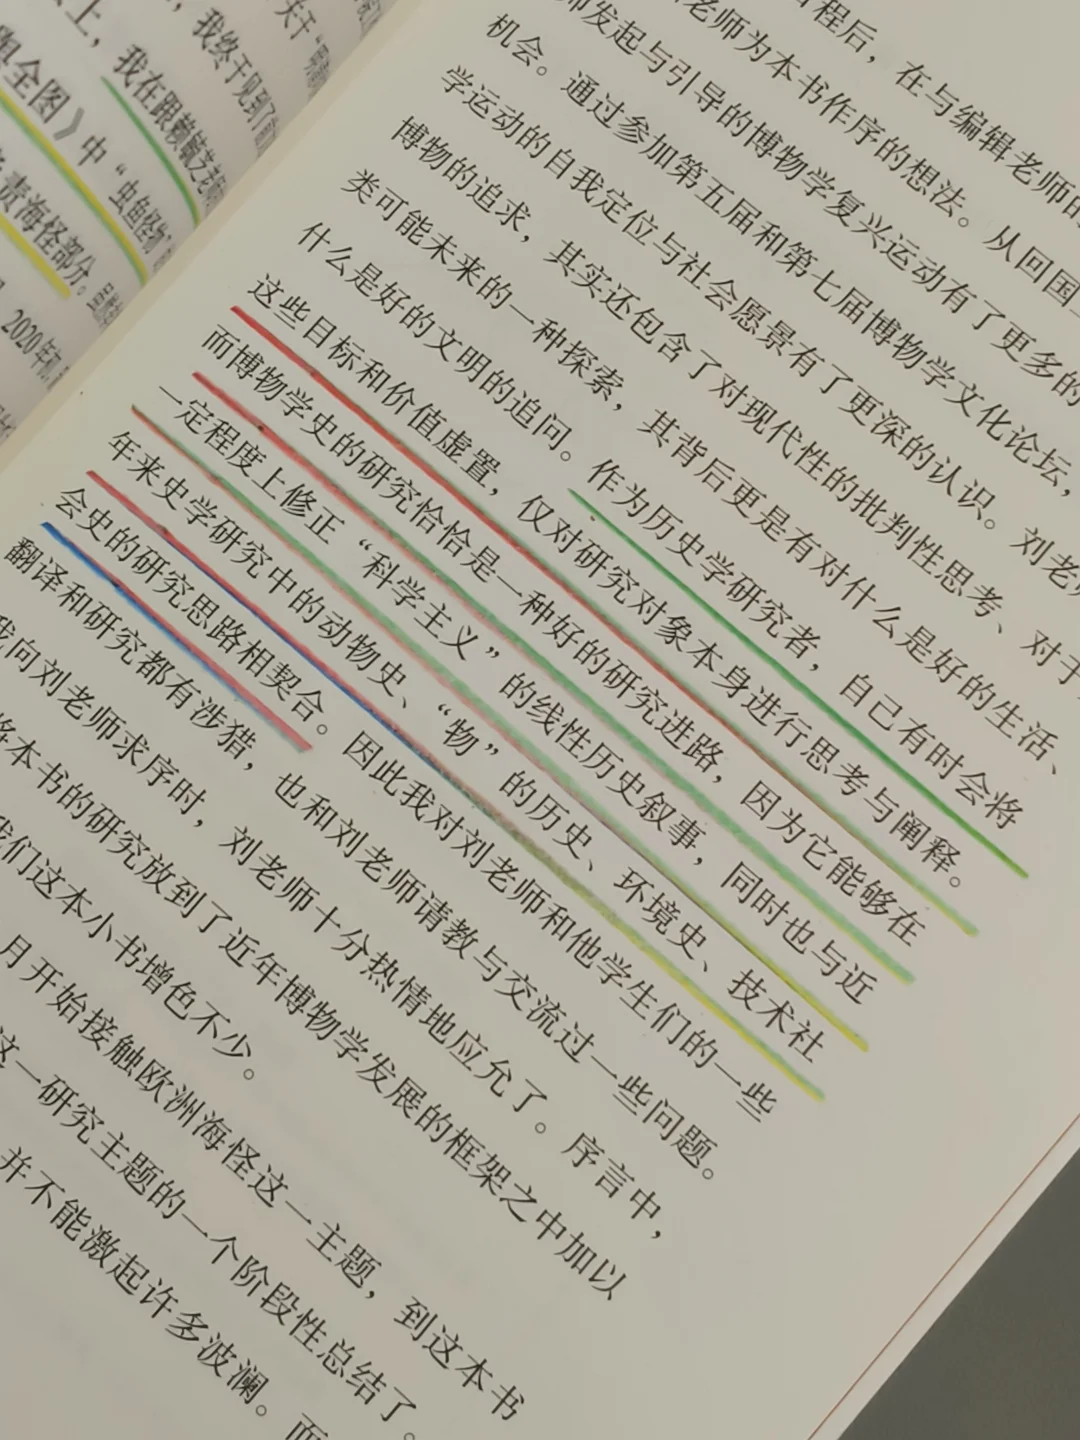 大于“
，我终于见到了
上，我在跟赖毓芝老师
舆全图》中“虫鱼怪物”
责海怪部分。
2020年初，
程后，在与编辑老师的
老师为本书作序的想法。从回国
师发起与引导的博物学复兴运动有了更多的
机会。通过参加第五届和第七届博物学文化论坛，
学运动的自我定位与社会愿景有了更深的认识。刘老师
博物的追求，其实还包含了对现代性的批判性思考、对于
类可能未来的一种探索，其背后更是有对什么是好的生活、
什么是好的文明的追问。作为历史学研究者，自己有时会将
这些目标和价值虚置，仅对研究对象本身进行思考与阐释。
而博物学史的研究恰恰是一种好的研究进路，因为它能够在
一定程度上修正“科学主义”的线性历史叙事，同时也与近
年来史学研究中的动物史、“物”的历史、环境史、技术社
会史的研究思路相契合。因此我对刘老师和他学生们的一些
翻译和研究都有涉猎，也和刘老师请教与交流过一些问题。
我向刘老师求序时，刘老师十分热情地应允了。序言中，
将本书的研究放到了近年博物学发展的框架之中加以
我们这本小书增色不少。
月开始接触欧洲海怪这一主题，到这本书
这一研究主题的一个阶段性总结了。
并不能激起许多波澜。而